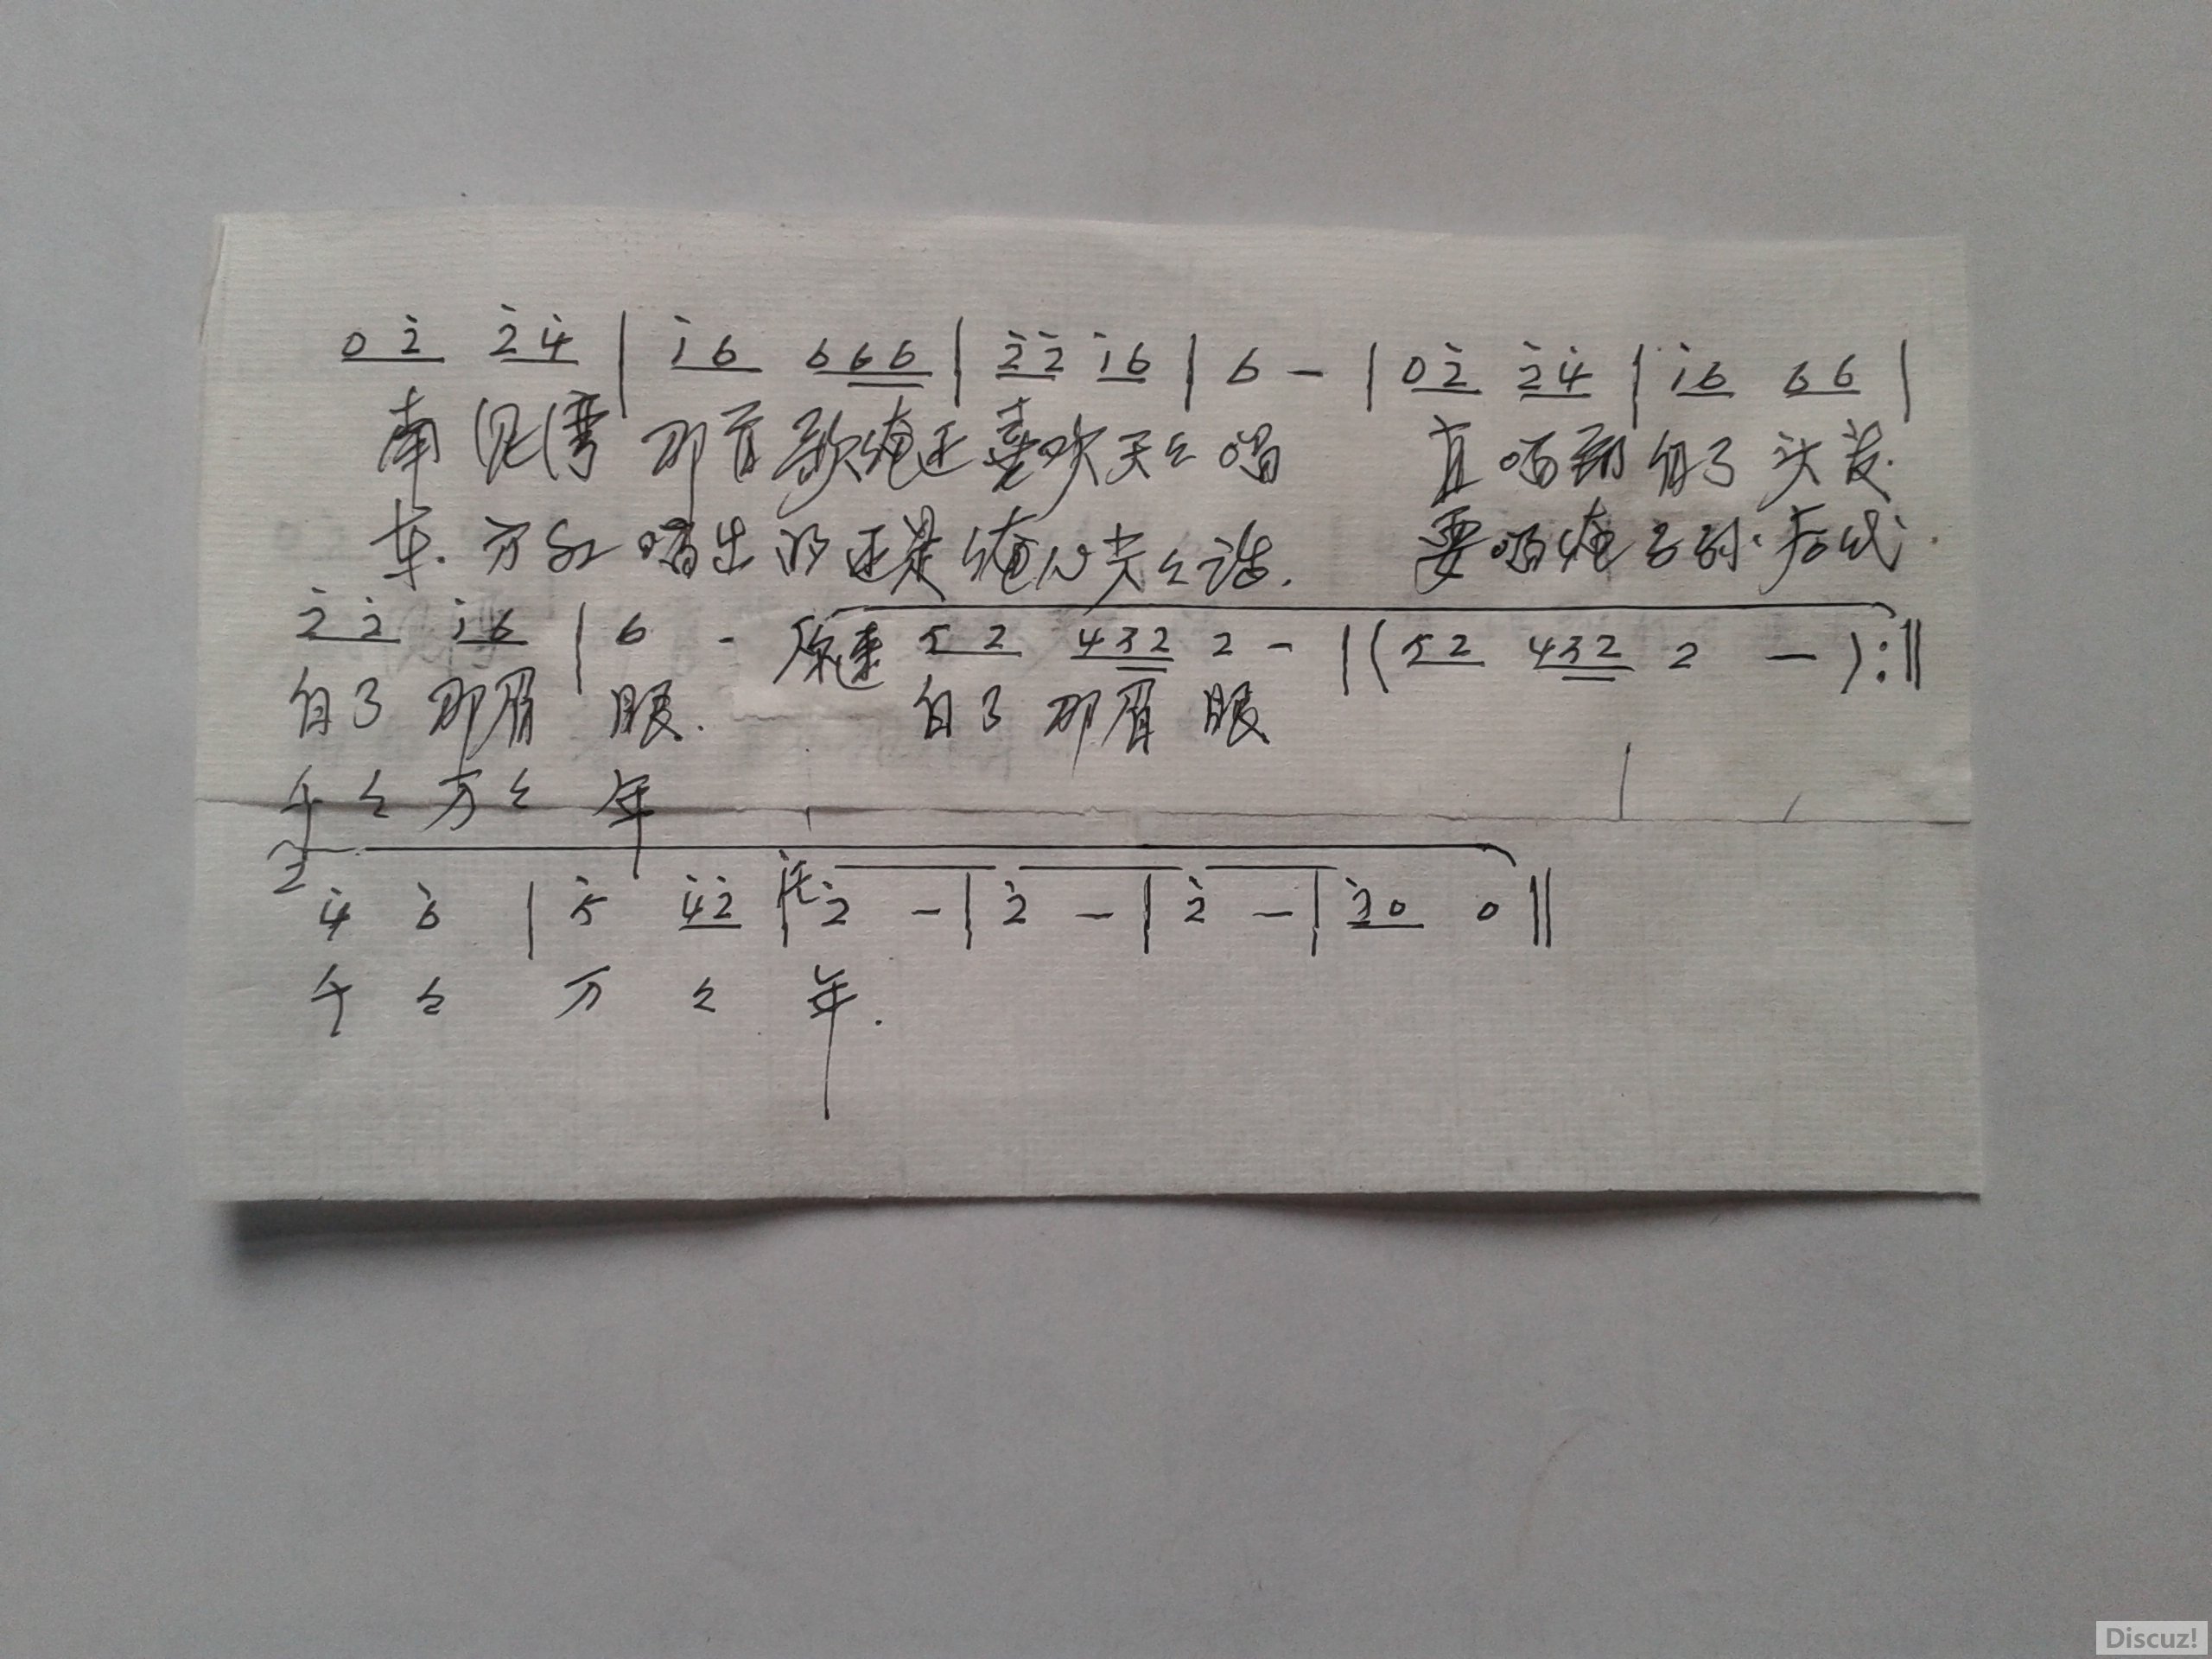 0 2̇ 2̇ 4̇ | 1̇ 6 6 6 6 | 2̇ 2̇ 1̇ 6 | 6 - | 0 2̇ 2̇ 4̇ | 1̇ 6 6 6 |
南泥湾 那首歌俺还喜欢天々唱 直唱到白了头发
东方红 唱出的还是俺心头々话. 要唱俺子孙后代
2̇ 2̇ 1̇ 6 | 6 - 原速 5 2 4 3 2 2 - | (5 2 4 3 2 2 — ) :‖
白了那眉眼. 白了那眉眼
千々万々年
2
4̇ 6̇ | 5̇ 4̇ 2̇ | 2̇ - | 2̇ - | 2̇ - | 2̇ 0 0 ‖
千々万々年.
Discuz!